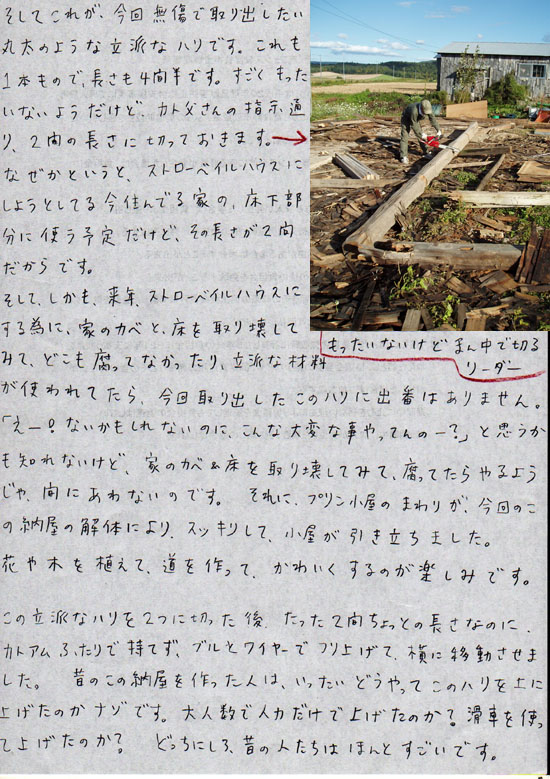 そしてこれが、今回無傷で取り出したい
丸太のような立派なハリです。これも
1本もので、長さも4間半です。すごくもった
いないようだけど、カト父さんの指示通
り、2間の長さに切っておきます。→
なぜかというと、ストローベイルハウスに
しようとしてる今住んでる家の、床下部
分に使う予定だけど、その長さが2間
だからです。
そして、しかも、来年、ストローベイルハウスに
する為に、家のカベと、床を取り壊して
みて、どこも腐ってなかったり、立派な材料
が使われてたら、今回取り出したこのハリに出番はありません。
「えー!ないかもしれないのに、こんな大変な事やってんのー?」と思うか
も知れないけど、家のカベ&床を取り壊してみて、腐ってたらやるよう
じゃ、間にあわないのです。それに、プリン小屋のまわりが、今回のこ
の納屋の解体により、スッキリして、小屋が引き立ちました。
花や木を植えて、道を作って、かわいくするのが楽しみです。
この立派なハリを2つに切った後、たった2間ちょっとの長さなのに、
カトアム ふたりで持てず、ブルとワイヤーでツリ上げて、横に移動させま
した。昔のこの納屋を作った人は、いったいどうやってこのハリを上に
上げたのかナゾです。大人数で人力だけで上げたのか?滑車を使っ
て上げたのか?どっちにしろ、昔の人たちはほんとすごいです。
もったいないけどまん中で切る
リーダー